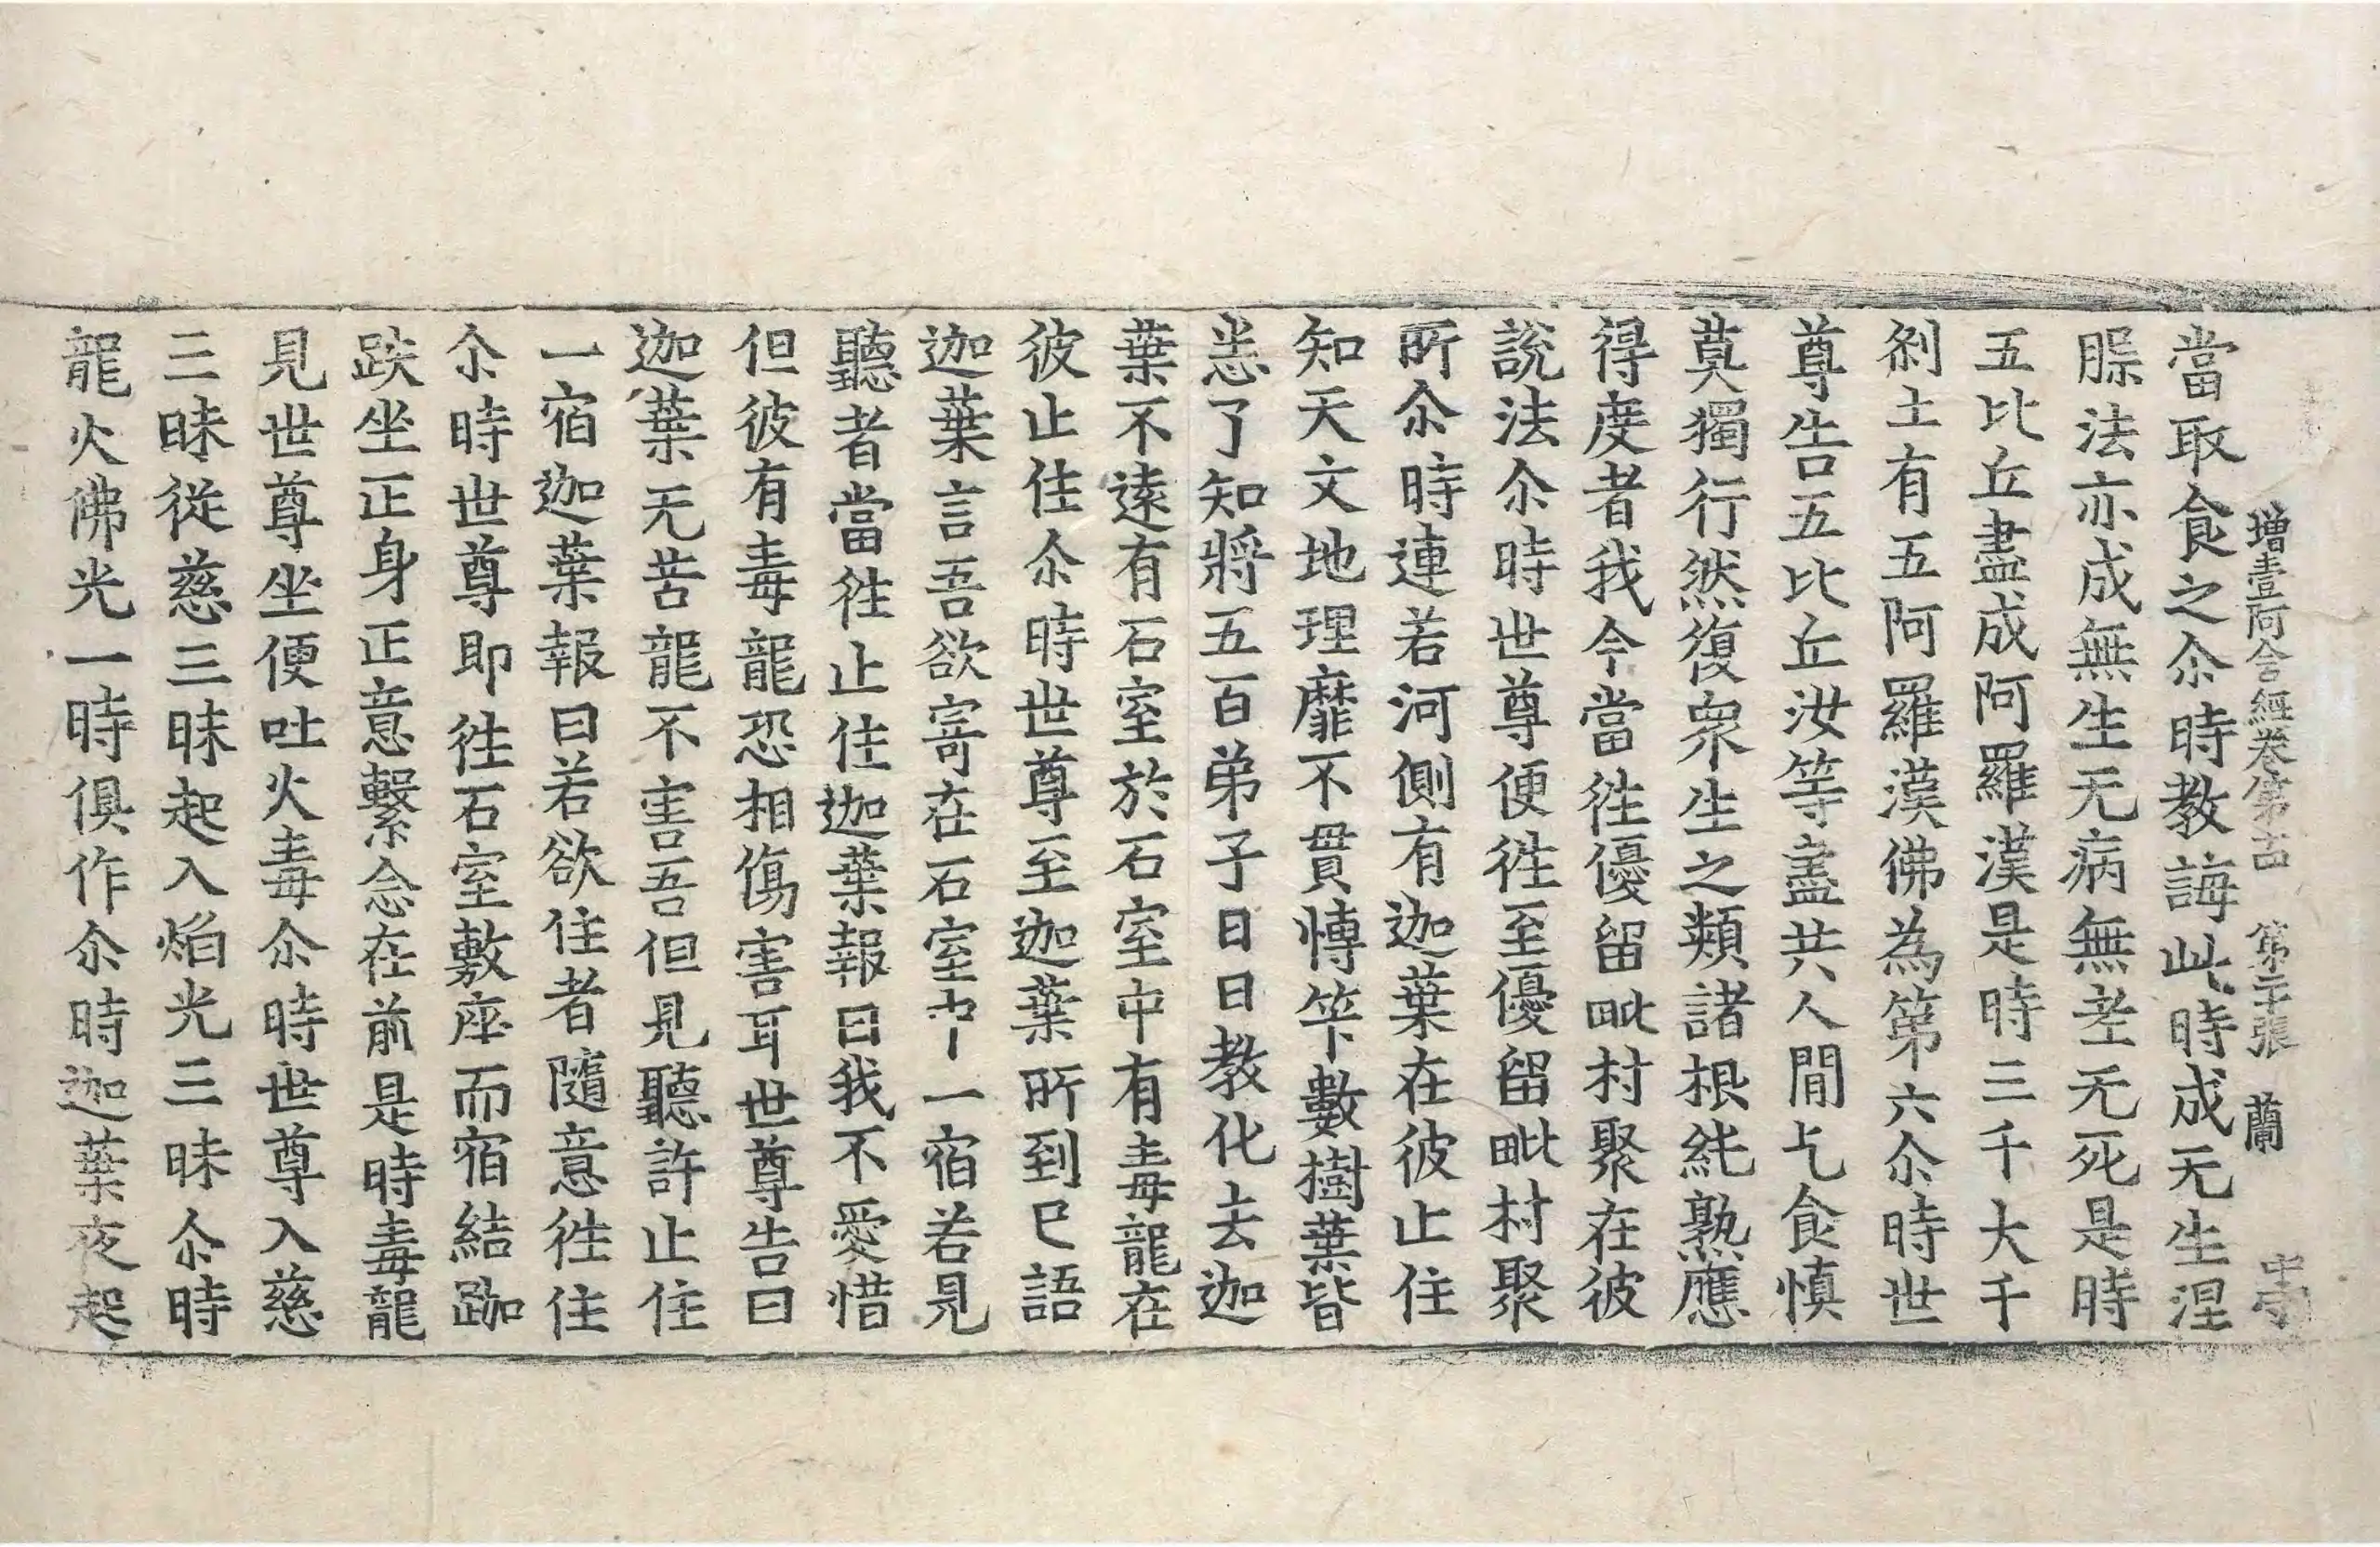 增壹阿含經卷第十四 第二十張 蘭
當取食之尒時教誨此時成无生涅
𦚾法亦成無生无病無老无死是時
五比丘盡成阿羅漢是時三千大千
刹土有五阿羅漢佛為第六尒時世
尊告五比丘汝等盡共人間乞食慎
莫獨行然復衆生之類諸根純熟應
得度者我今當徃優留毗村聚在彼
說法尒時世尊便徃至優留毗村聚
所尒時連若河側有迦葉在彼止住
知天文地理靡不貫博筭數樹葉皆
悉了知將五百弟子日日教化去迦
葉不遠有石室於石室中有毒龍在
彼止住尒時世尊至迦葉所到已語
迦葉言吾欲寄在石室中一宿若見
聽者當徃止住迦葉報曰我不愛惜
但彼有毒龍恐相傷害耳世尊告曰
迦葉无苦龍不害吾但見聽許止住
一宿迦葉報曰若欲住者隨意徃住
尒時世尊即徃石室敷座而宿結跏
趺坐正身正意繫念在前是時毒龍
見世尊坐便吐火毒尒時世尊入慈
三昧從慈三昧起入焰光三昧尒時
龍火佛光一時俱作尒時迦葉夜起